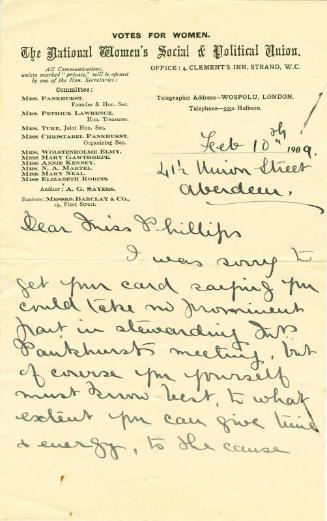 VOTES FOR WOMEN.
The National Women's Social & Political Union.
All Communications,
unless marked "private," will be opened
by one of the Hon. Secretaries:
OFFICE: 4, CLEMENT'S INN, STRAND, W.C.
Committee:
MRS. PANKHURST,
Founder & Hon. Sec.
MRS. PETHICK LAWRENCE,
Hon. Treasurer.
MRS. TUKE, Joint Hon. Sec.
MISS CHRISTABEL PANKHURST,
Organizing Sec.
MRS. WOLSTENHOLME ELMY.
MISS MARY GAWTHORPE.
MISS ANNIE KENNEY.
MRS. N. A. MARTEL.
MISS MARY NEAL.
MISS ELIZABETH ROBINS.
Auditor: A. G. SAYERS.
Bankers: MESSRS. BARCLAY & CO.,
19, Fleet Street.
Telegraphic Address—WOSPOLU, LONDON.
Telephone—5550 Holborn.
Feb 10th 1909.
41½ Union Street
Aberdeen.
Dear Miss Phillips
I was sorry to
get your card saying you
could take no prominent
part in stewarding Mrs
Pankhurst's meeting, but
of course you yourself
must know best, to what
extent you can give time
& energy, to the cause